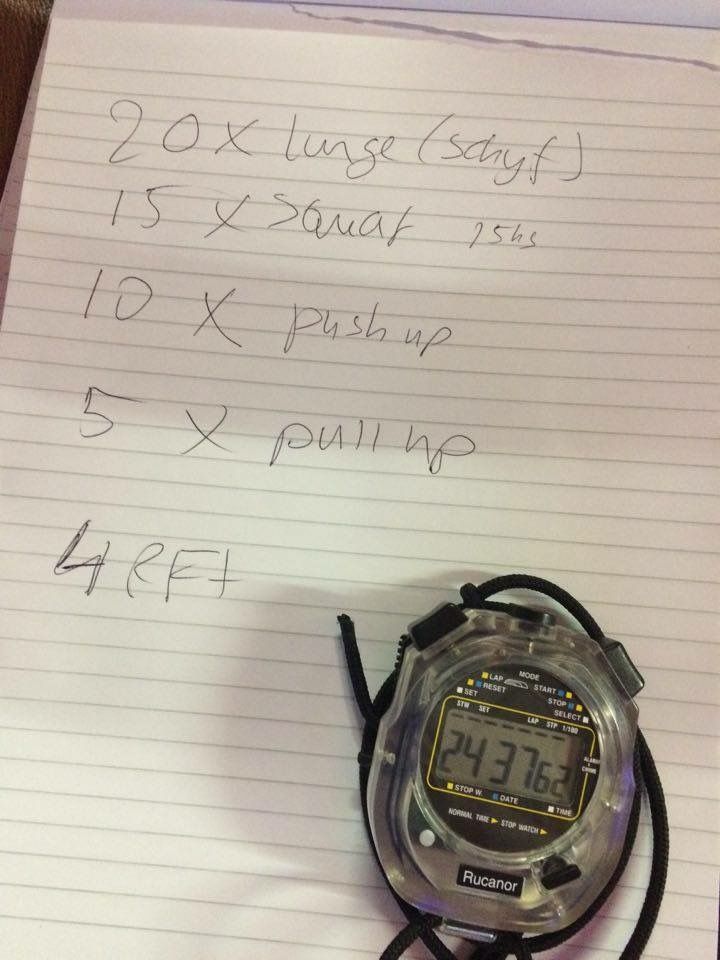 20 X lunge (schyf)
15 X squat 15kg
10 X push up
5 X pull up
4 RFt
MODE
LAP START
RESET STOP
SET SELECT
STW SET LAP STP 1/100
24 37 62
ALARM
CHIME
STOP W. DATE TIME
NORMAL TIME STOP WATCH
Rucanor